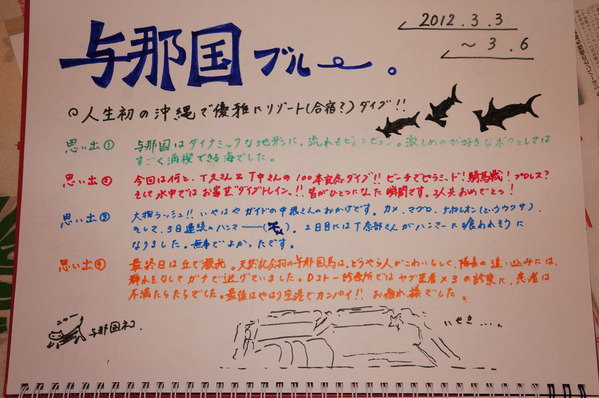 与那国ブルー。
2012.3.3
～3.6
人生初の沖縄で優雅にリゾート(合宿?)ダイブ!!
思い出① 与那国はダイナミックな地形に、流れもビュンビュン。激しめのが好きなボクとしては
すごく満喫できる海でした。
思い出② 今回は何と、T久さん&T中さんの100本記念ダイブ!! ビーチでピラミード!騎馬戦!プロレス?
そして水中ではお家芸ダイブトレイン!! 皆がひとつになった瞬間です。2人共おめでとう!
思い出③ 大物ラッシュ!! いやはやガイドの中根さんのおかげです。カメ、マグロ、ナポレオン(というウワサ)、
そして、3日連続のハンマー
2日目にはT奈部くんがハンマーに喰われそうに
なりました。無事でよか、たです。
思い出④ 最終日は丘で観光。天然記念物の与那国馬は、どうやら人がこわいらしく、隊長の追い込みには、
群れをなしてガチで逃げていました。Dコトー診療所ではヤブ医者×3の診察に、患者は
不満たらたらでした。最後はやはり空港でカンパイ!! お疲れ様でした。
ニャー
与那国ネコ.
いせき...。